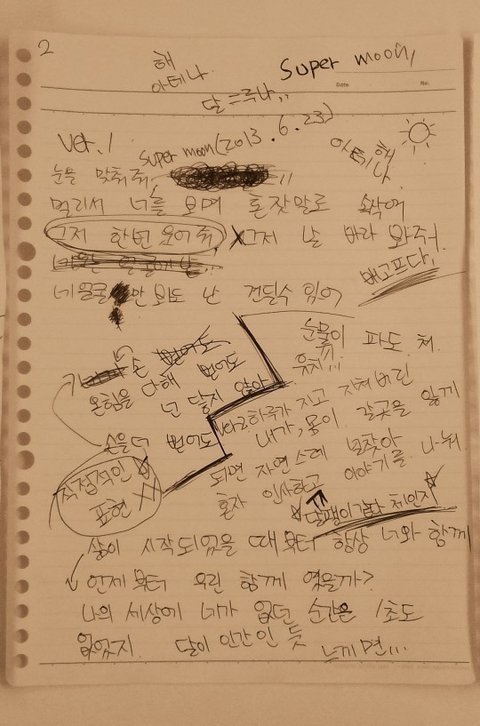 2
해
아테나
Super moon,
Date No.
달=루나..
ver.1
super moon(2013.6.23)
아테나, 해
눈을 맞춰줘,
멀리서 너를 보며 혼잣말로 속삭여
그저 한번 웃어줘 X그저 날 바라봐줘
배고프다,
네 얼굴 안 봐도 난 견딜수 있어
눈물이 파도 쳐.
유치!!!
손 뻗어도
온힘을 다해 뻗어도
넌 닿지 않아
손을 더 뻗어도
직접적인
표현 XX
ver.2 하루가 지고 지쳐버린
내가, 몸이 갈곳을 잃게
되면 자연스레 널찾아
혼자 인사하고 이야기를 나눠
☆달팽이같은 체인지☆
삶이 시작되었을 때부터 항상 너와 함께
언제부터 우린 함께 였을까?
나의 세상에 너가 없던 순간은 1초도
없었지. 달이 인간인 듯 느끼면...